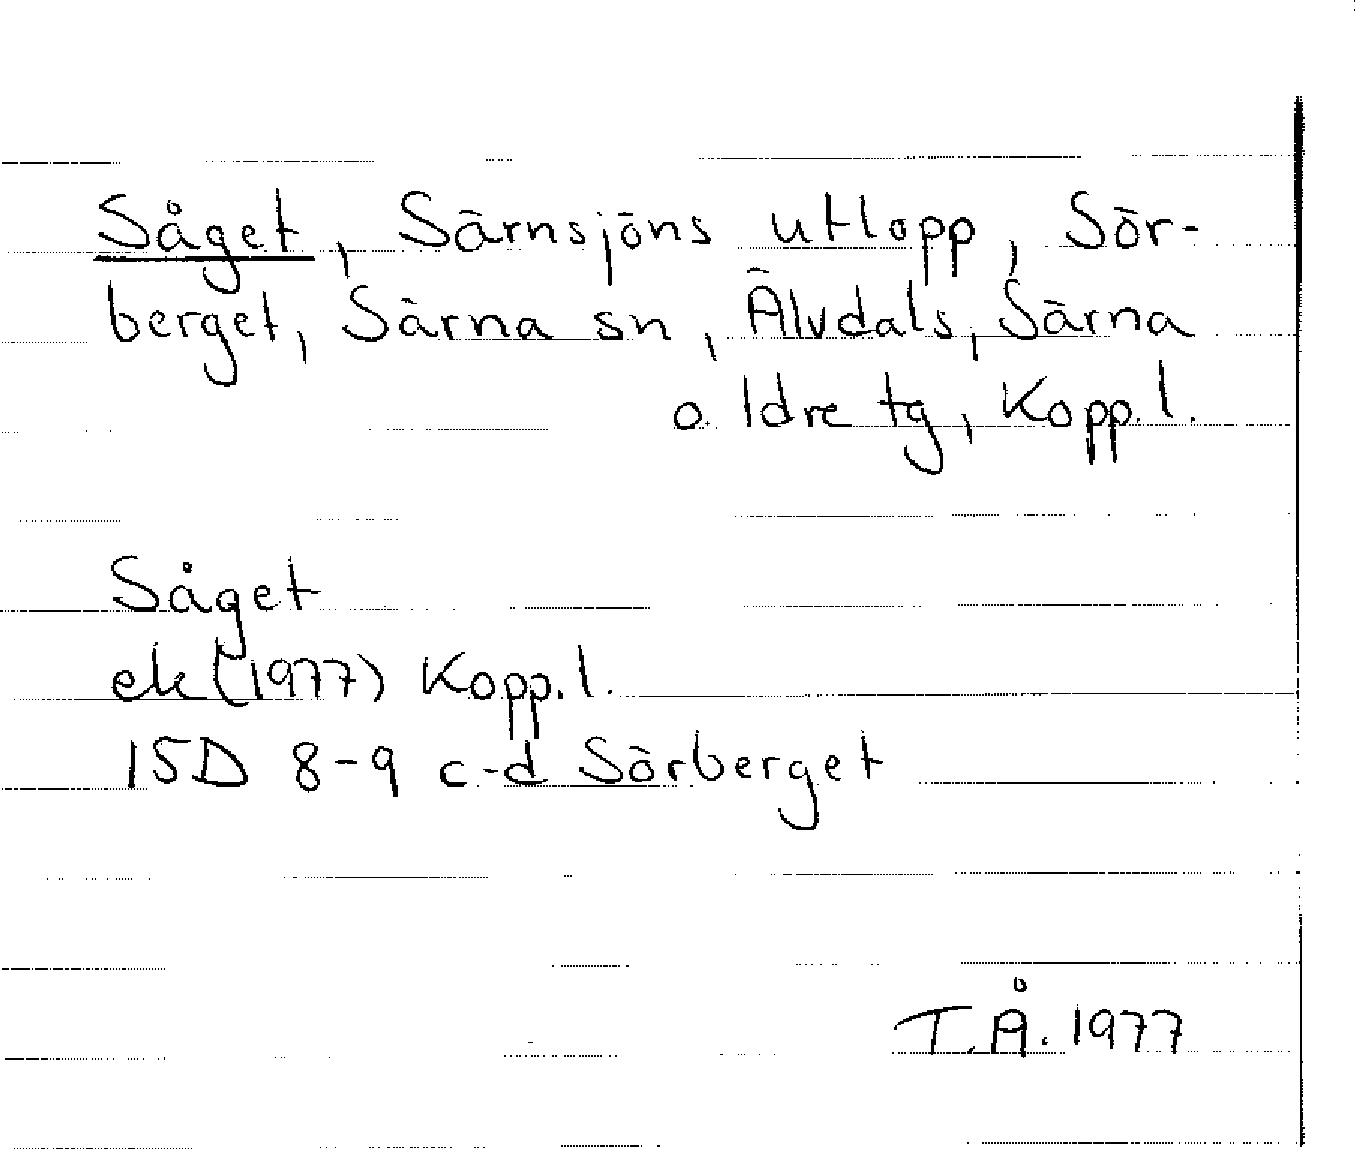 Såget, Särnsjöns utlopp, Sör-
berget, Särna sn, Älvdals, Särna
o. Idre tg, Kopp. l.
Såget
ek (1977) Kopp. l.
15D 8-9 c-d Sörberget
T.Å. 1977